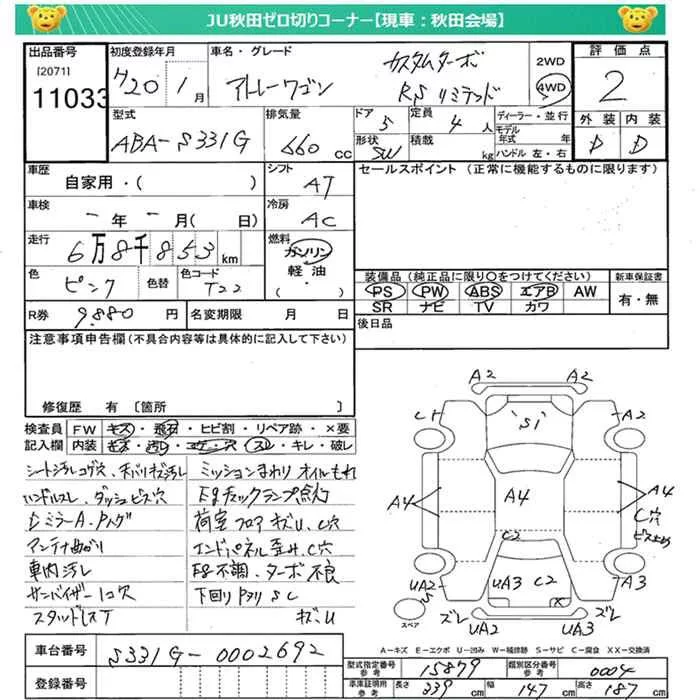 JU秋田ゼロ切りコーナー【現車：秋田会場】
出品番号
[2071]
11033
初度登録年月
H20 1月
車名・グレード
アトレーワゴン
カスタムターボ
RSリミテッド
2WD
4WD
評価点
2
外装 内装
D D
型式
ABA-S331G
排気量
660 cc
ドア
5
形状
SW
定員
4人
積載
kg
ディーラー・並行
モデル年式 年
ハンドル 左・右
車歴
自家用・( )
シフト
AT
セールスポイント (正常に機能するものに限ります)
車検
- 年 - 月( 日)
冷房
AC
走行
6万8千853km
燃料
ガソリン
軽油・
( )
色
ピンク
色替
色コード
T22
装備品(純正品に限り○をつけてください)
PS PW ABS エアB AW
SR ナビ TV カワ
新車保証書
有・無
R券
9,880円
名変期限 月 日
後日品
注意事項申告欄(不具合内容等は具体的に記入して下さい)
修復歴 有 〔箇所 〕
検査員記入欄
FW キズ・飛石・ヒビ割・リペア跡・×要
内装 キズ・汚レ・コゲ・穴・スレ・キレ・破レ
シート汚レコゲ穴、天バリキズ汚レ
ハンドルスレ、ダッシュビス穴
DミラーA、Pハゲ
アンテナ曲がり
車内汚レ
サンバイザーコ穴
スタッドレスT
ミッションまわりオイルもれ
E/gチェックランプ点灯
荷室フロアキズU、C穴
エンドパネル歪み、C穴
E/g不調、ターボ不良
下回りPヌリSC
キズ、U
A2 A2
S1
A2
A4 A4 A4
C穴
ビス止め
C2
UA2 UA3 C2 A3
S
スペア
ズレ ズレ
UA2 UA3
A－キズ E－エクボ U－凹み W－補修跡 S－サビ C－腐食 XX－交換済
車台番号
S331G-0002692
登録番号
型式指定番号 参考
15879
類別区分番号 参考
0004
車庫証明用 参考
長さ 339cm 幅 147cm 高さ 187cm